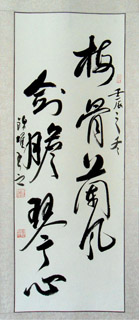 梅骨兰风
壬辰之冬
剑胆琴心